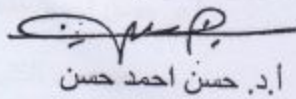 أ.د. حسن احمد حسن